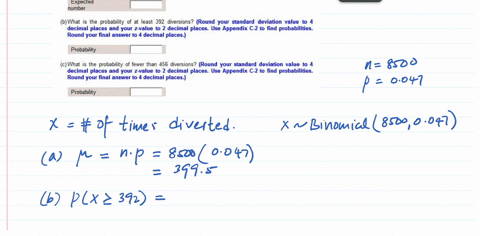 Expected
number
(b)What is the probability of at least 392 diversions? (Round your standard deviation value to 4
decimal places and your z-value to 2 decimal places. Use Appendix C-2 to find probabilities.
Round your final answer to 4 decimal places.)
Probability
(c)What is the probability of fewer than 456 diversions? (Round your standard deviation value to 4
decimal places and your z-value to 2 decimal places. Use Appendix C-2 to find probabilities.
Round your final answer to 4 decimal places.)
Probability
n = 8500
p = 0.047
X = # of times diverted.
X ~ Binomial (8500, 0.047)
(a) μ = n.p = 8500 (0.047)
= 399.5
(b) P(X ≥ 392) =